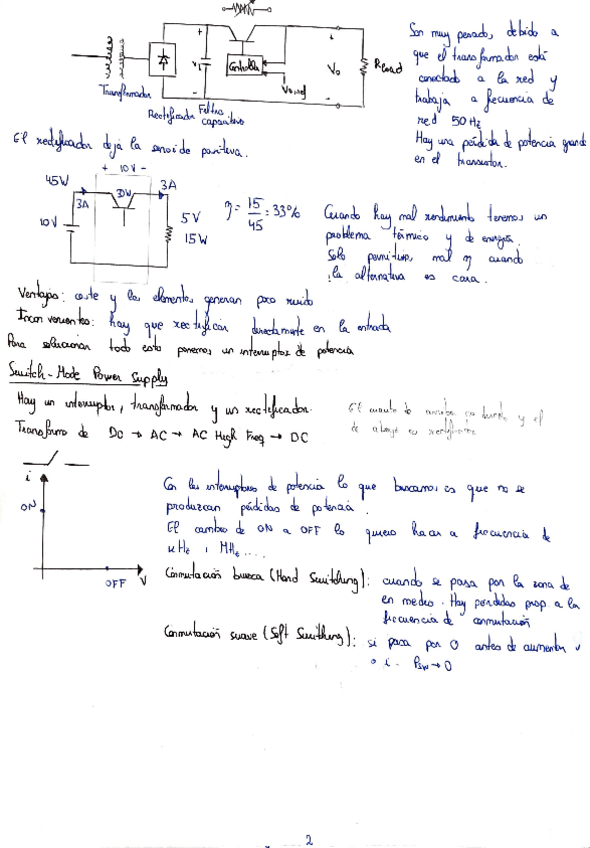 Son muy pesados, debido a
que el transformador está
conectado a la red y
trabaja a frecuencia de
red 50 Hz
Hay una pérdida de potencia grande
en el transistor.
Controlador
Vi
Vo
Rload
Vo ref
Transformador
Rectificador Filtro
capacitivo
El rectificador deja la senoide positiva.
+ 10V -
45W
30W
3A
3A
10V
5V
15W
η = 15/45 = 33%
Cuando hay mal rendimiento tenemos un
problema térmico y de energía.
Solo permitimos mal η cuando
la alternativa es cara.
Ventajas: coste y los elementos generan poco ruido
Inconvenientes: hay que rectificar directamente en la entrada
Para solucionar todo esto ponemos un interruptor de potencia
Switch-Mode Power Supply
Hay un interruptor, transformador y un rectificador.
Transformo de DC → AC → AC High Freq → DC
i
ON
OFF
V
Con los interruptores de potencia lo que buscamos es que no se
produzcan pérdidas de potencia.
El cambio de ON a OFF lo quiero hacer a frecuencia de
kHz, MHz....
Conmutación brusca (Hard Switching): cuando se pasa por la zona de
en medio. Hay pérdidas prop. a la
frecuencia de conmutación
Conmutación suave (Soft Switching): si pasa por 0 antes de aumentar v
o i. Psw → 0
2